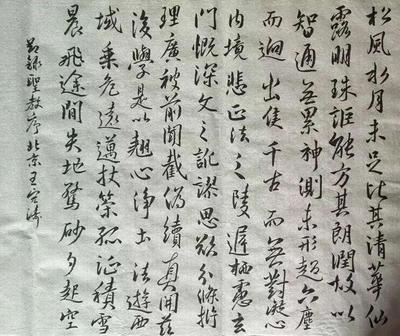 松風水月未足比其清華仙
露明珠詎能方其朗潤故以
智通无累神測未形超六塵
而迥出隻千古而无對凝心
内境悲正法之陵遲栖慮玄
門慨深文之訛謬思欲分條析
理廣彼前聞截偽續真開茲
後學是以翹心淨土法遊西
域乘危遠邁杖策孤征積雪
晨飛途間失地驚砂夕起空
節錄聖教序北京王